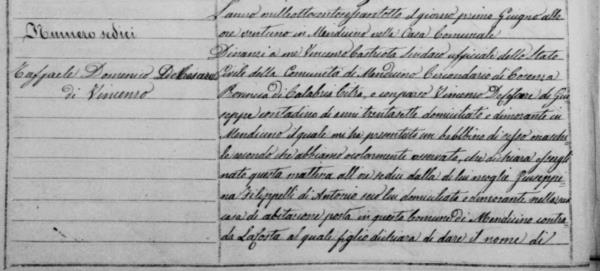 L'anno milleottocentosessantotto il giorno primo Giugno alle
Numero sedici
ore ventuno in Mendicino nella Casa Comunale
Dinanzi a me Vincenzo Castriota Sindaco uffiziale dello Stato
Raffaele Domenico DeCesare
Civile della Comunità di Mendicino Circondario di Cosenza
di Vincenzo
Provincia di Calabria Citra, è comparso Vincenzo DeCesare di Giu-
seppe contadino di anni trentasette domiciliato e dimorante in
Mendicino il quale mi ha presentato un bambino di sesso maschi-
le secondo che abbiamo ocularmente osservato, che dichiara essergli
nato questa mattina all'ore sedici dalla di lui moglie Giuseppi-
na Filippelli di Antonio seco lui domiciliata e dimorante nella sua
casa di abitazione posta in questo Comune di Mendicino contra-
da Lafosta al quale figlio dichiara di dare il nome di